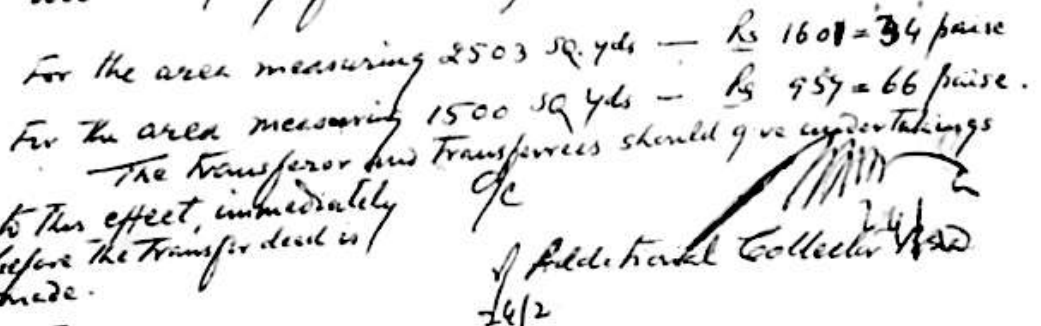 For the area measuring 2503 sq. yds — Rs 1601=34 paise
For the area measuring 1500 sq yds — Rs 957=66 paise.
The transferor and transferees should give undertakings
to this effect, immediately
before the transfer deed is
made.
o/c
Additional Collector
24/2